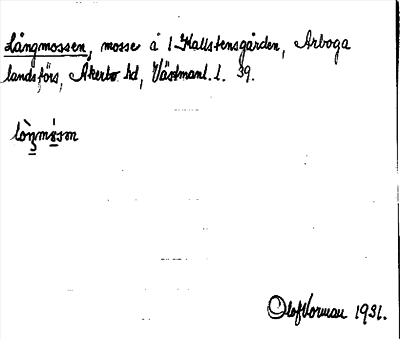 Långmossen, mosse å 1 Hallstensgården, Arboga
landsförs, Åkerbo hd, Västmanl. l. 39.
Olof Vorman 1931.